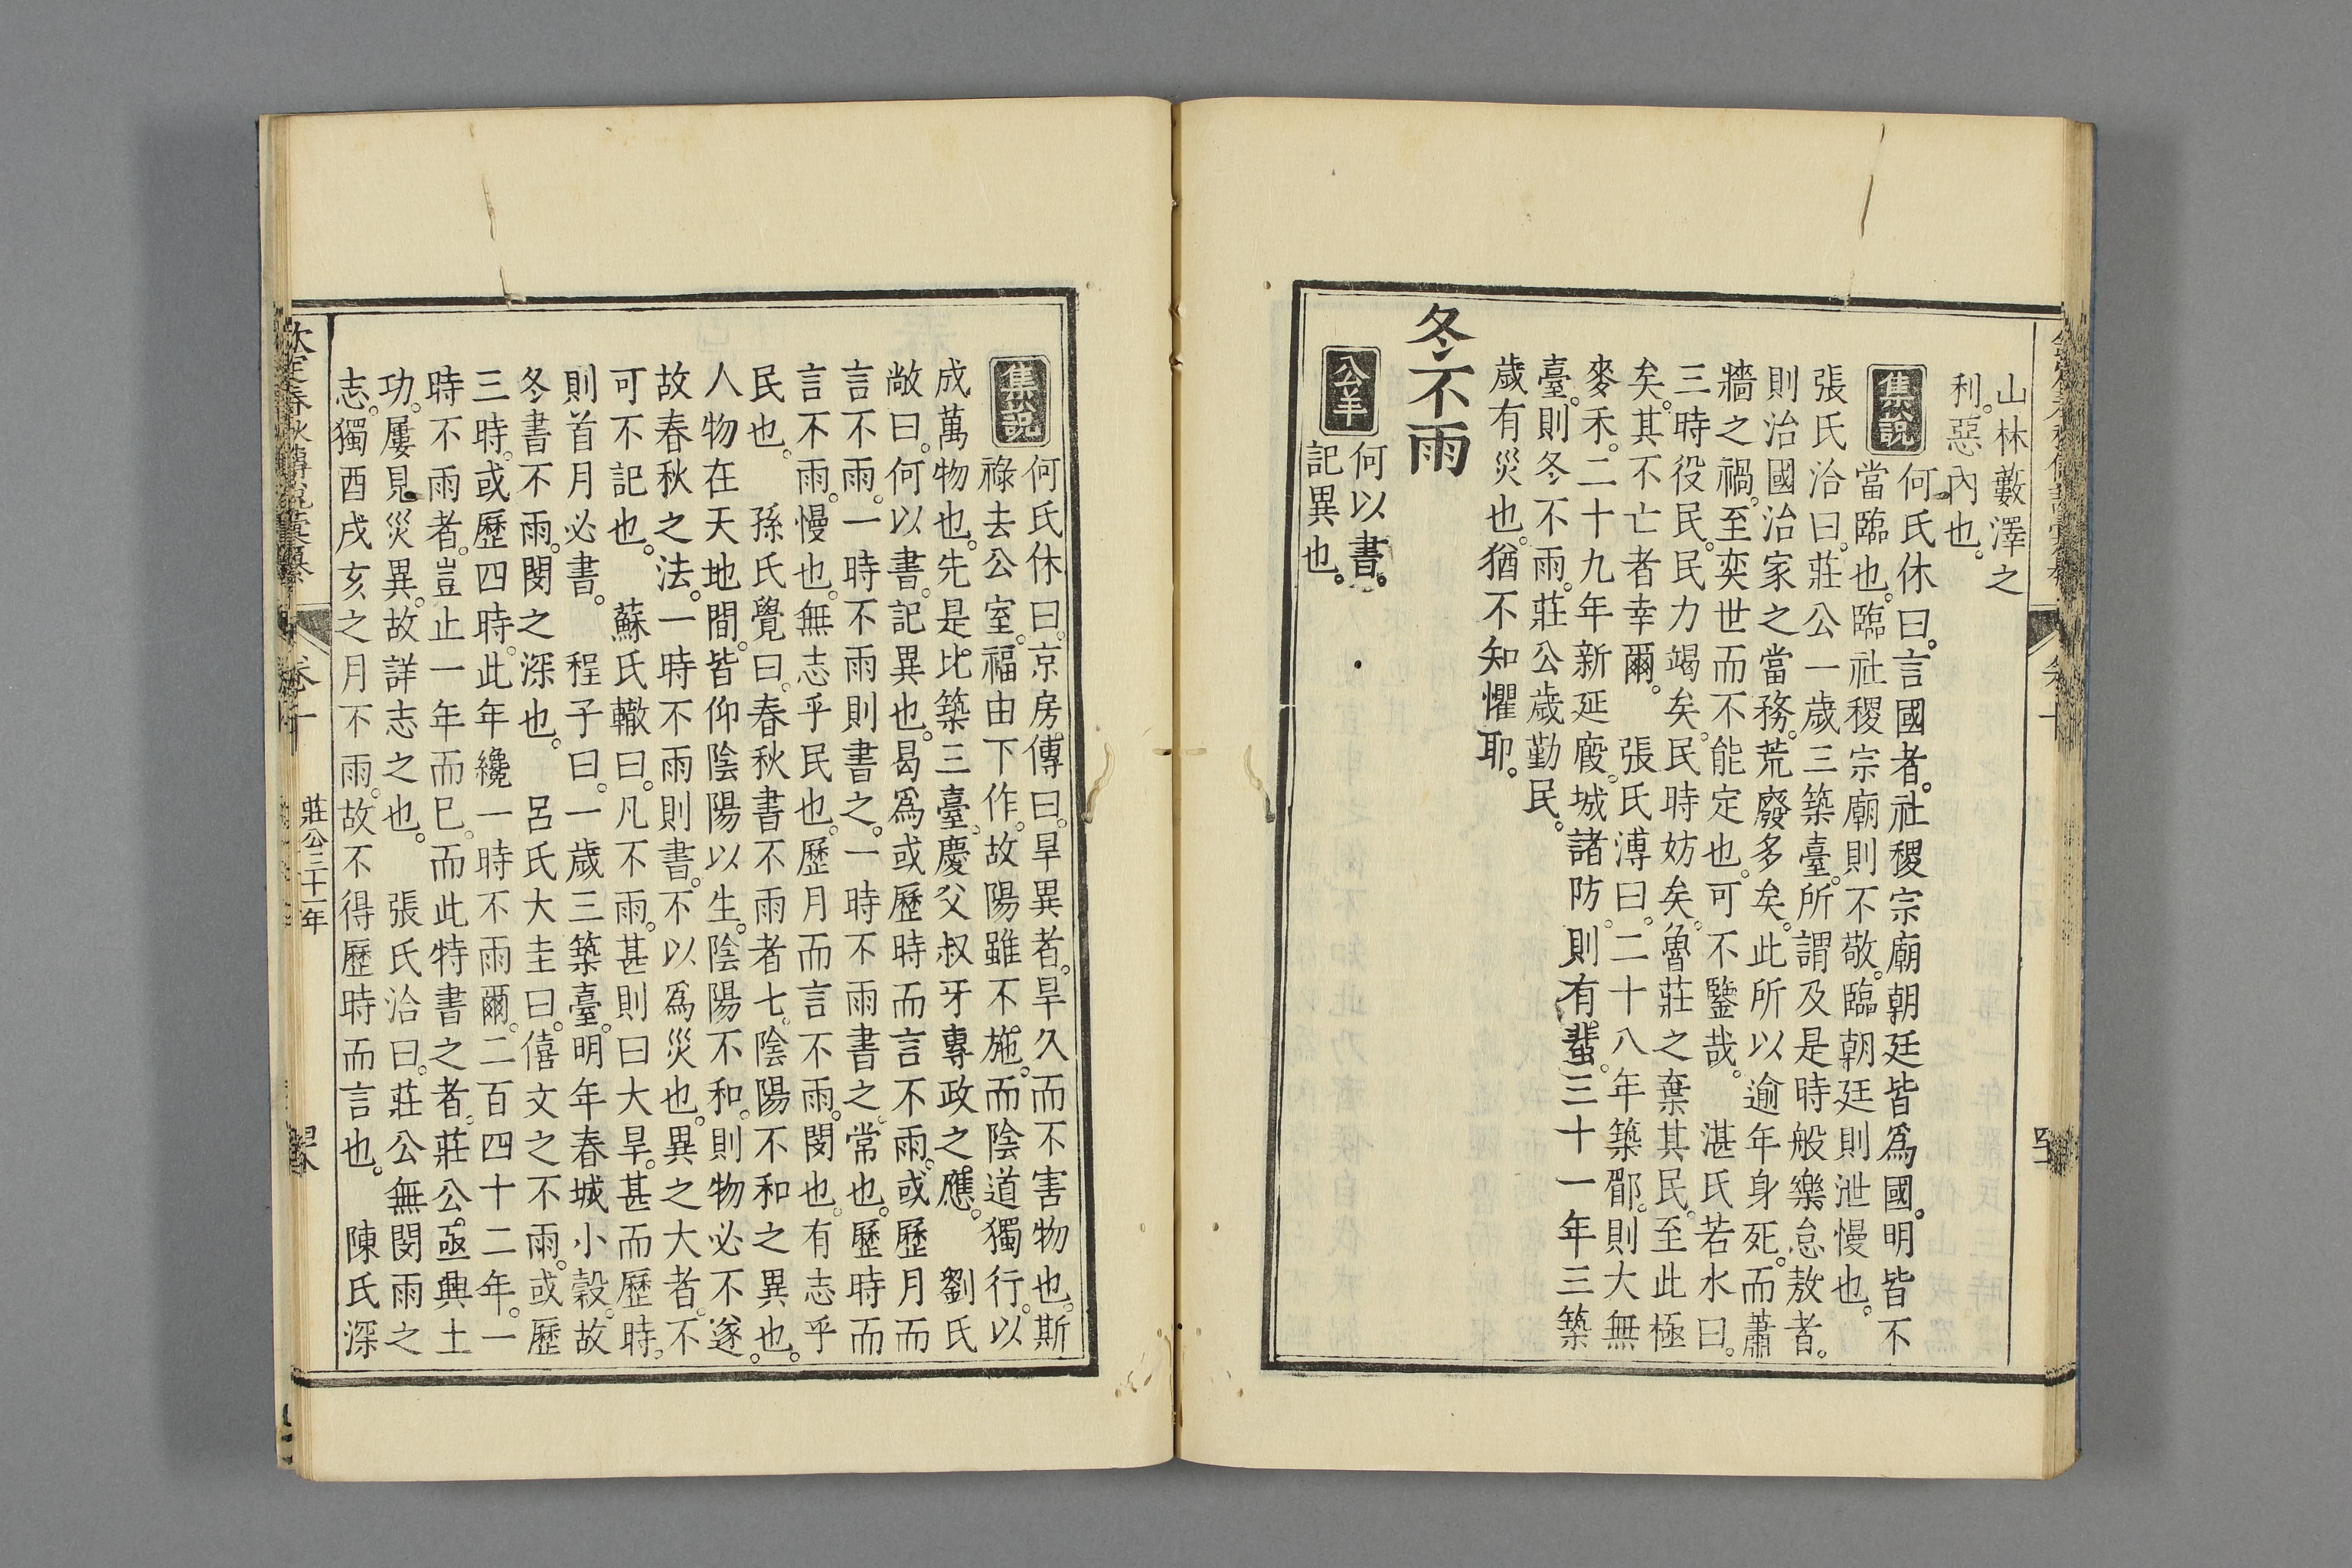 山林藪澤之
利。惡內也。
集說
何氏休曰。言國者。社稷宗廟朝廷皆爲國。明皆不
當臨也。臨社稷宗廟則不敬。臨朝廷則泄慢也。
張氏洽曰。莊公一歲三築臺。所謂及是時般樂怠敖者。
則治國治家之當務。荒廢多矣。此所以逾年身死。而蕭
牆之禍。至奕世而不能定也。可不鑒哉。　湛氏若水曰。
三時役民。民力竭矣。民時妨矣。魯莊之棄其民。至此極
矣。其不亡者幸爾。　張氏溥曰。二十八年築郿。則大無
麥禾。二十九年新延廄。城諸防。則有蜚。三十一年三築
臺。則冬不雨。莊公歲勤民。
歲有災也。猶不知懼耶。
冬不雨
公羊
何以書。
記異也。
集說
何氏休曰。京房傳曰。旱異者。旱久而不害物也。斯
祿去公室。福由下作。故陽雖不施。而陰道獨行。以
成萬物也。先是比築三臺。慶父叔牙專政之應。　劉氏
敞曰。何以書。記異也。曷爲或歷時而言不雨。或歷月而
言不雨。一時不雨則書之。一時不雨書之。常也。歷時而
言不雨。慢也。無志乎民也。歷月而言不雨。閔也。有志乎
民也。　孫氏覺曰。春秋書不雨者七。陰陽不和之異也。
人物在天地間。皆仰陰陽以生。陰陽不和。則物必不遂。
故春秋之法。一時不雨則書。不以爲災也。異之大者。不
可不記也。　蘇氏轍曰。凡不雨。甚則曰大旱。甚而歷時。
則首月必書。　程子曰。一歲三築臺。明年春城小穀。故
冬書不雨。閔之深也。　呂氏大圭曰。僖文之不雨。或歷
三時。或歷四時。此年纔一時不雨爾。二百四十二年。一
時不雨者。豈止一年而巳。而此特書之者。莊公亟興土
功。屢見災異。故詳志之也。　張氏洽曰。莊公無閔雨之
志。獨酉戌亥之月不雨。故不得歷時而言也。　陳氏深
欽定春秋傳說彙纂
卷十
莊公三十一年